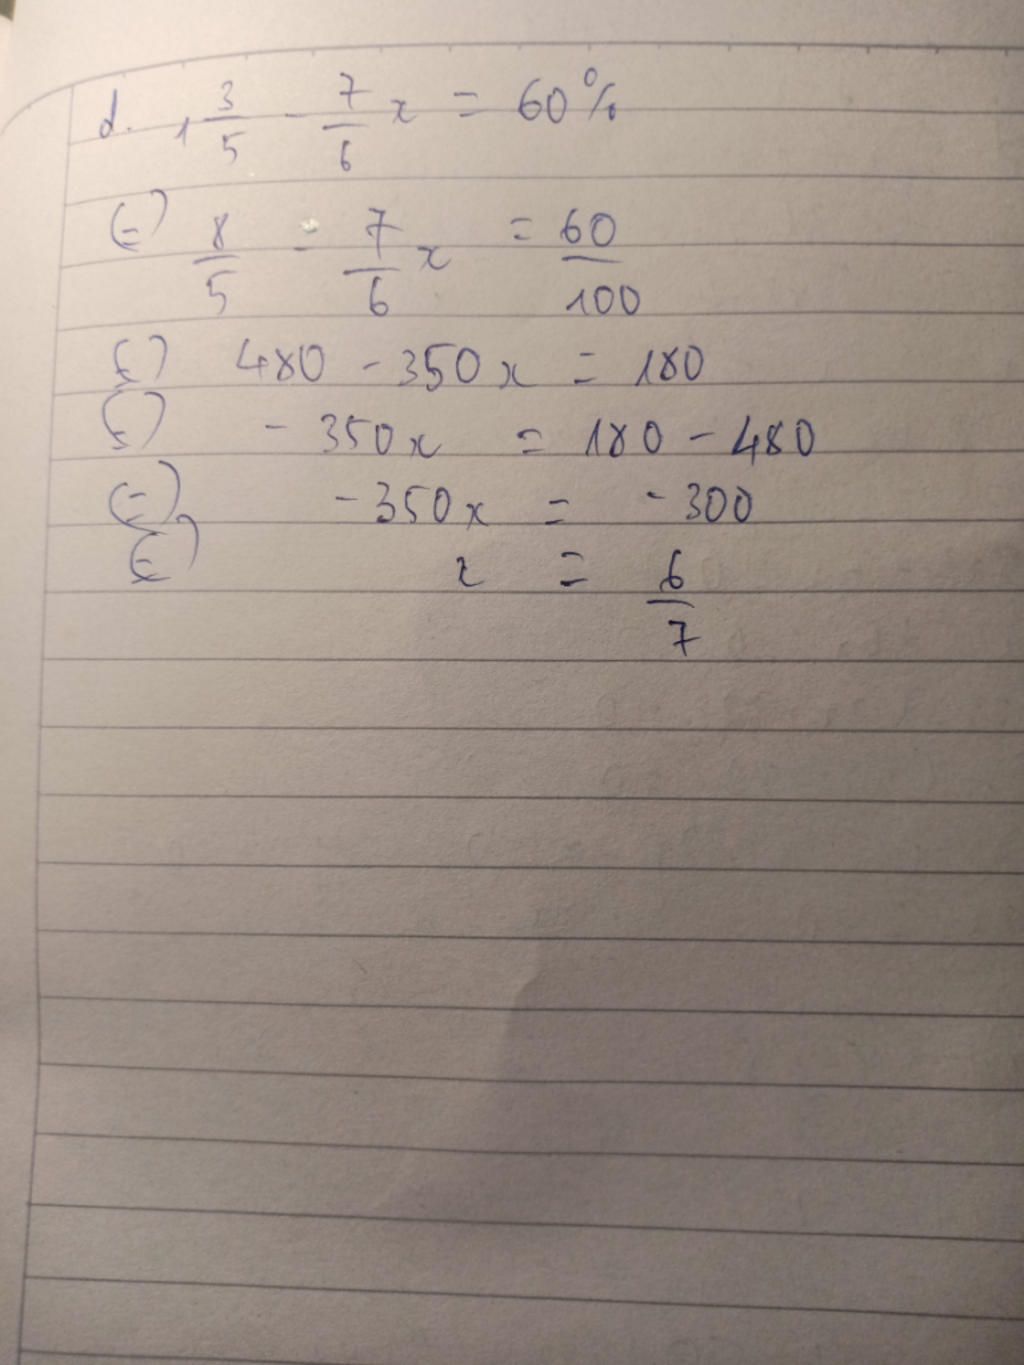 d. 1 3/5 - 7/6 x = 60%
(=) 8/5 - 7/6 x = 60/100
(=) 480 - 350x = 180
(=) - 350x = 180 - 480
(=) -350x = -300
(=) x = 6/7